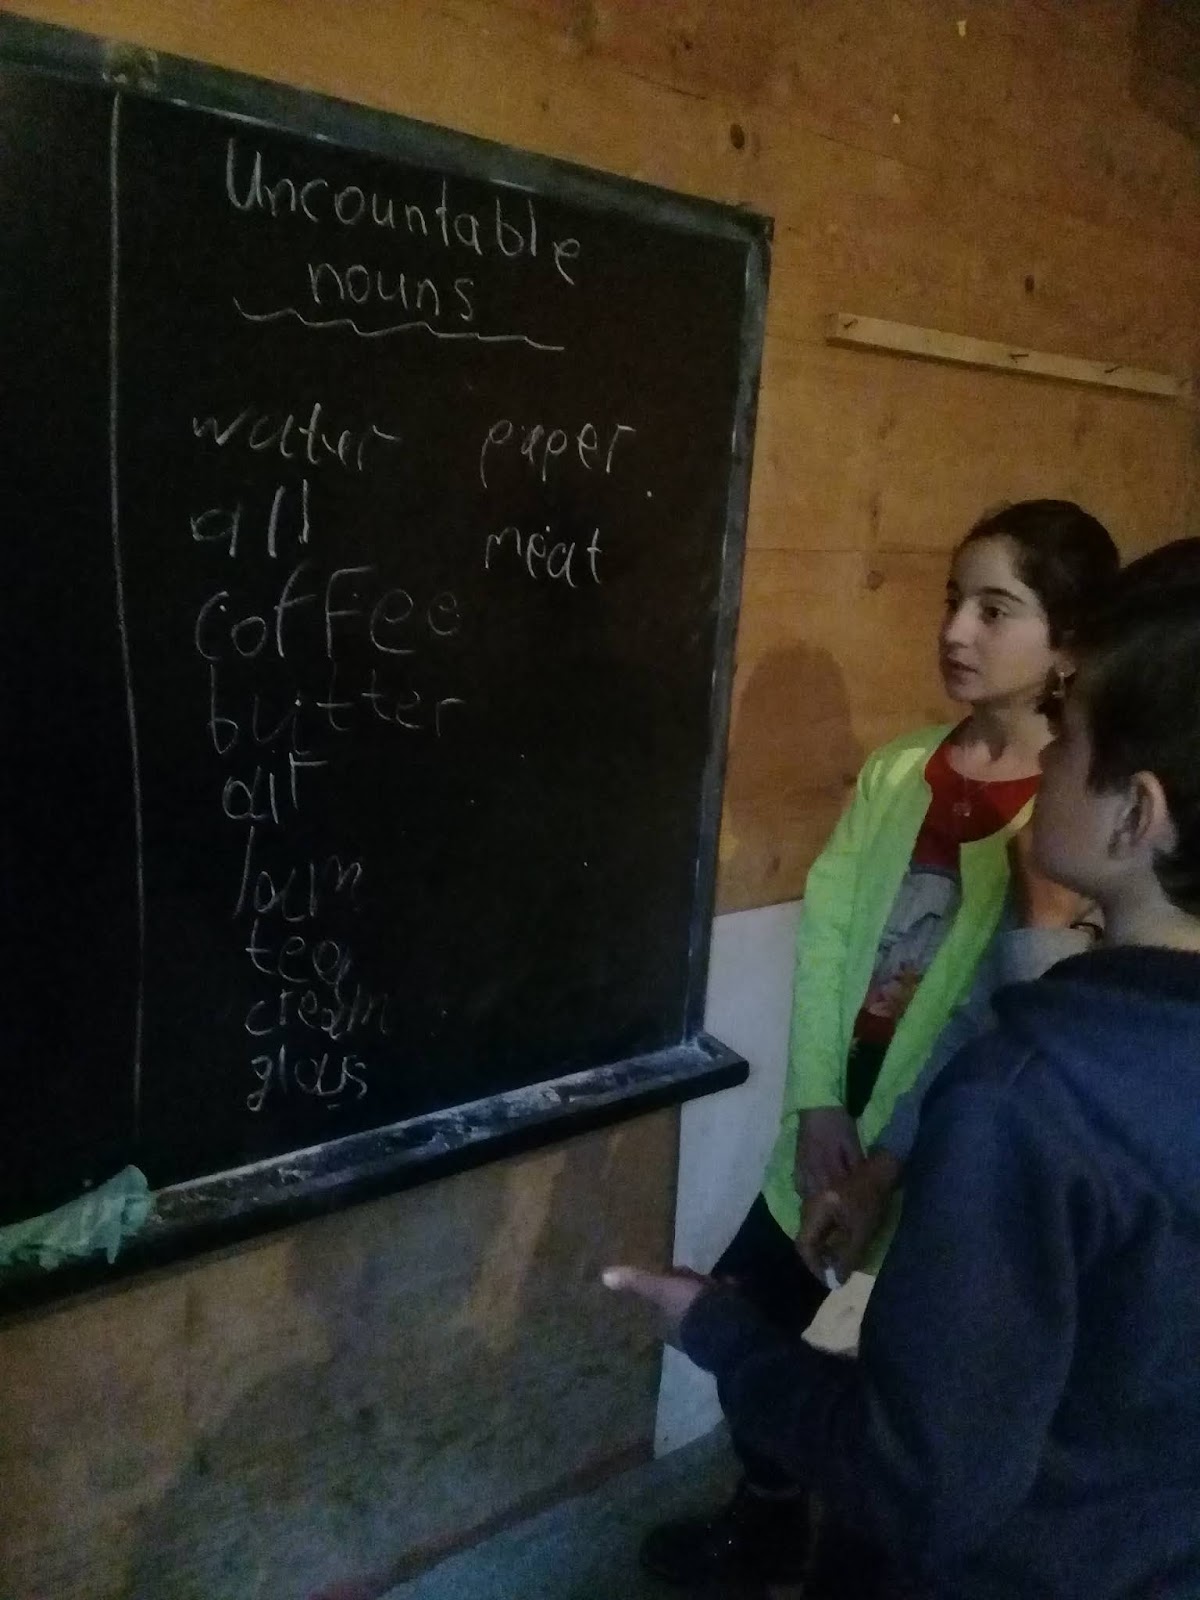 Uncountable
nouns
water
oil
coffee
butter
air
jam
tea
cream
glass
paper
meat